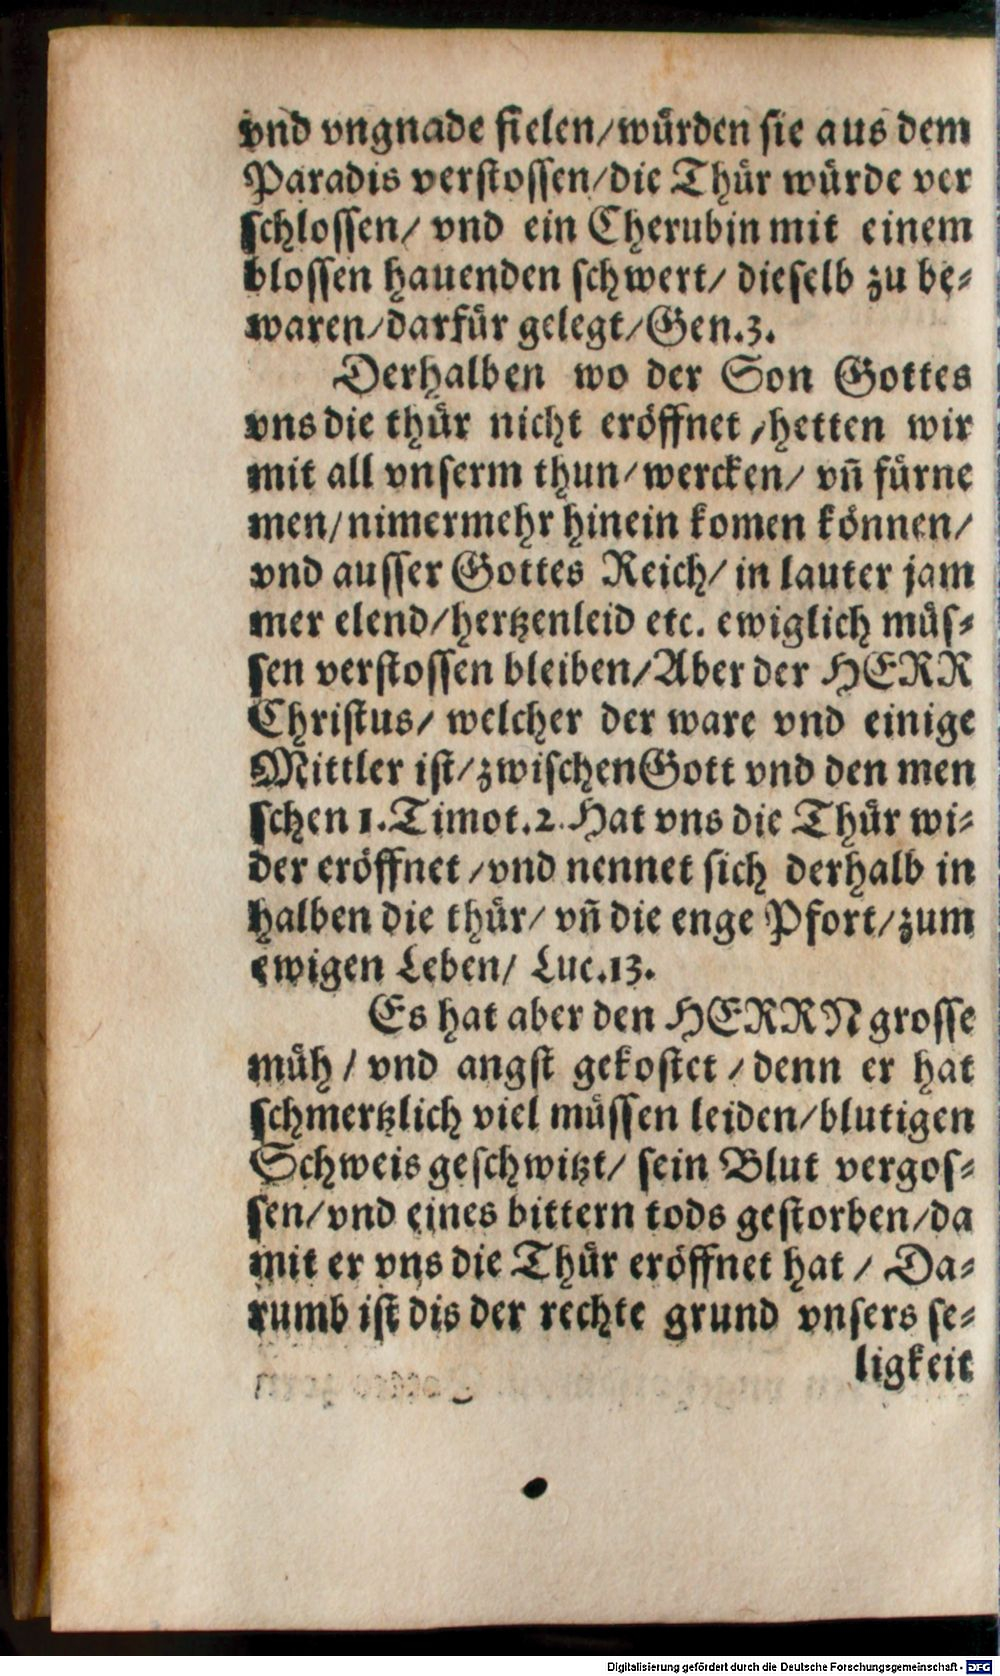 vnd vngnade fielen/würden sie aus dem
Paradis verstossen/die Thür würde ver
schlossen/ vnd ein Cherubin mit einem
blossen hauenden schwert/ dieselb zu be⸗
waren/darfür gelegt/Gen.3.
Derhalben wo der Son Gottes
vns die thür nicht eröffnet/hetten wir
mit all vnserm thun/wercken/ vñ fürne
men/nimermehr hinein komen können/
vnd ausser Gottes Reich/ in lauter jam
mer elend/hertzenleid etc. ewiglich müs⸗
sen verstossen bleiben/Aber der HERR
Christus/ welcher der ware vnd einige
Mittler ist/zwischen Gott vnd den men
schen 1.Timot.2. Hat vns die Thür wi⸗
der eröffnet/vnd nennet sich derhalb in
halben die thür/ vñ die enge Pfort/zum
ewigen Leben/ Luc.13.
Es hat aber den HERRN grosse
müh/ vnd angst gekostet/denn er hat
schmertzlich viel müssen leiden/blutigen
Schweis geschwitzt/ sein Blut vergos⸗
sen/vnd eines bittern tods gestorben/da
mit er vns die Thür eröffnet hat/ Da⸗
rumb ist dis der rechte grund vnsers se⸗
ligkeit
Digitalisierung gefördert durch die Deutsche Forschungsgemeinschaft - DFG